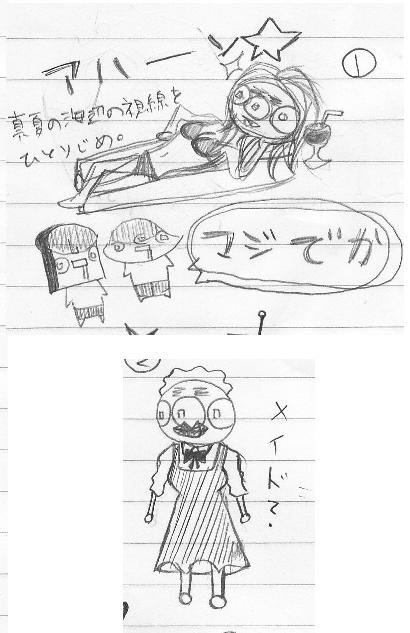 アハーン☆
①
真夏の海辺の視線を
ひとりじめ。
マジでか
②
メイド?